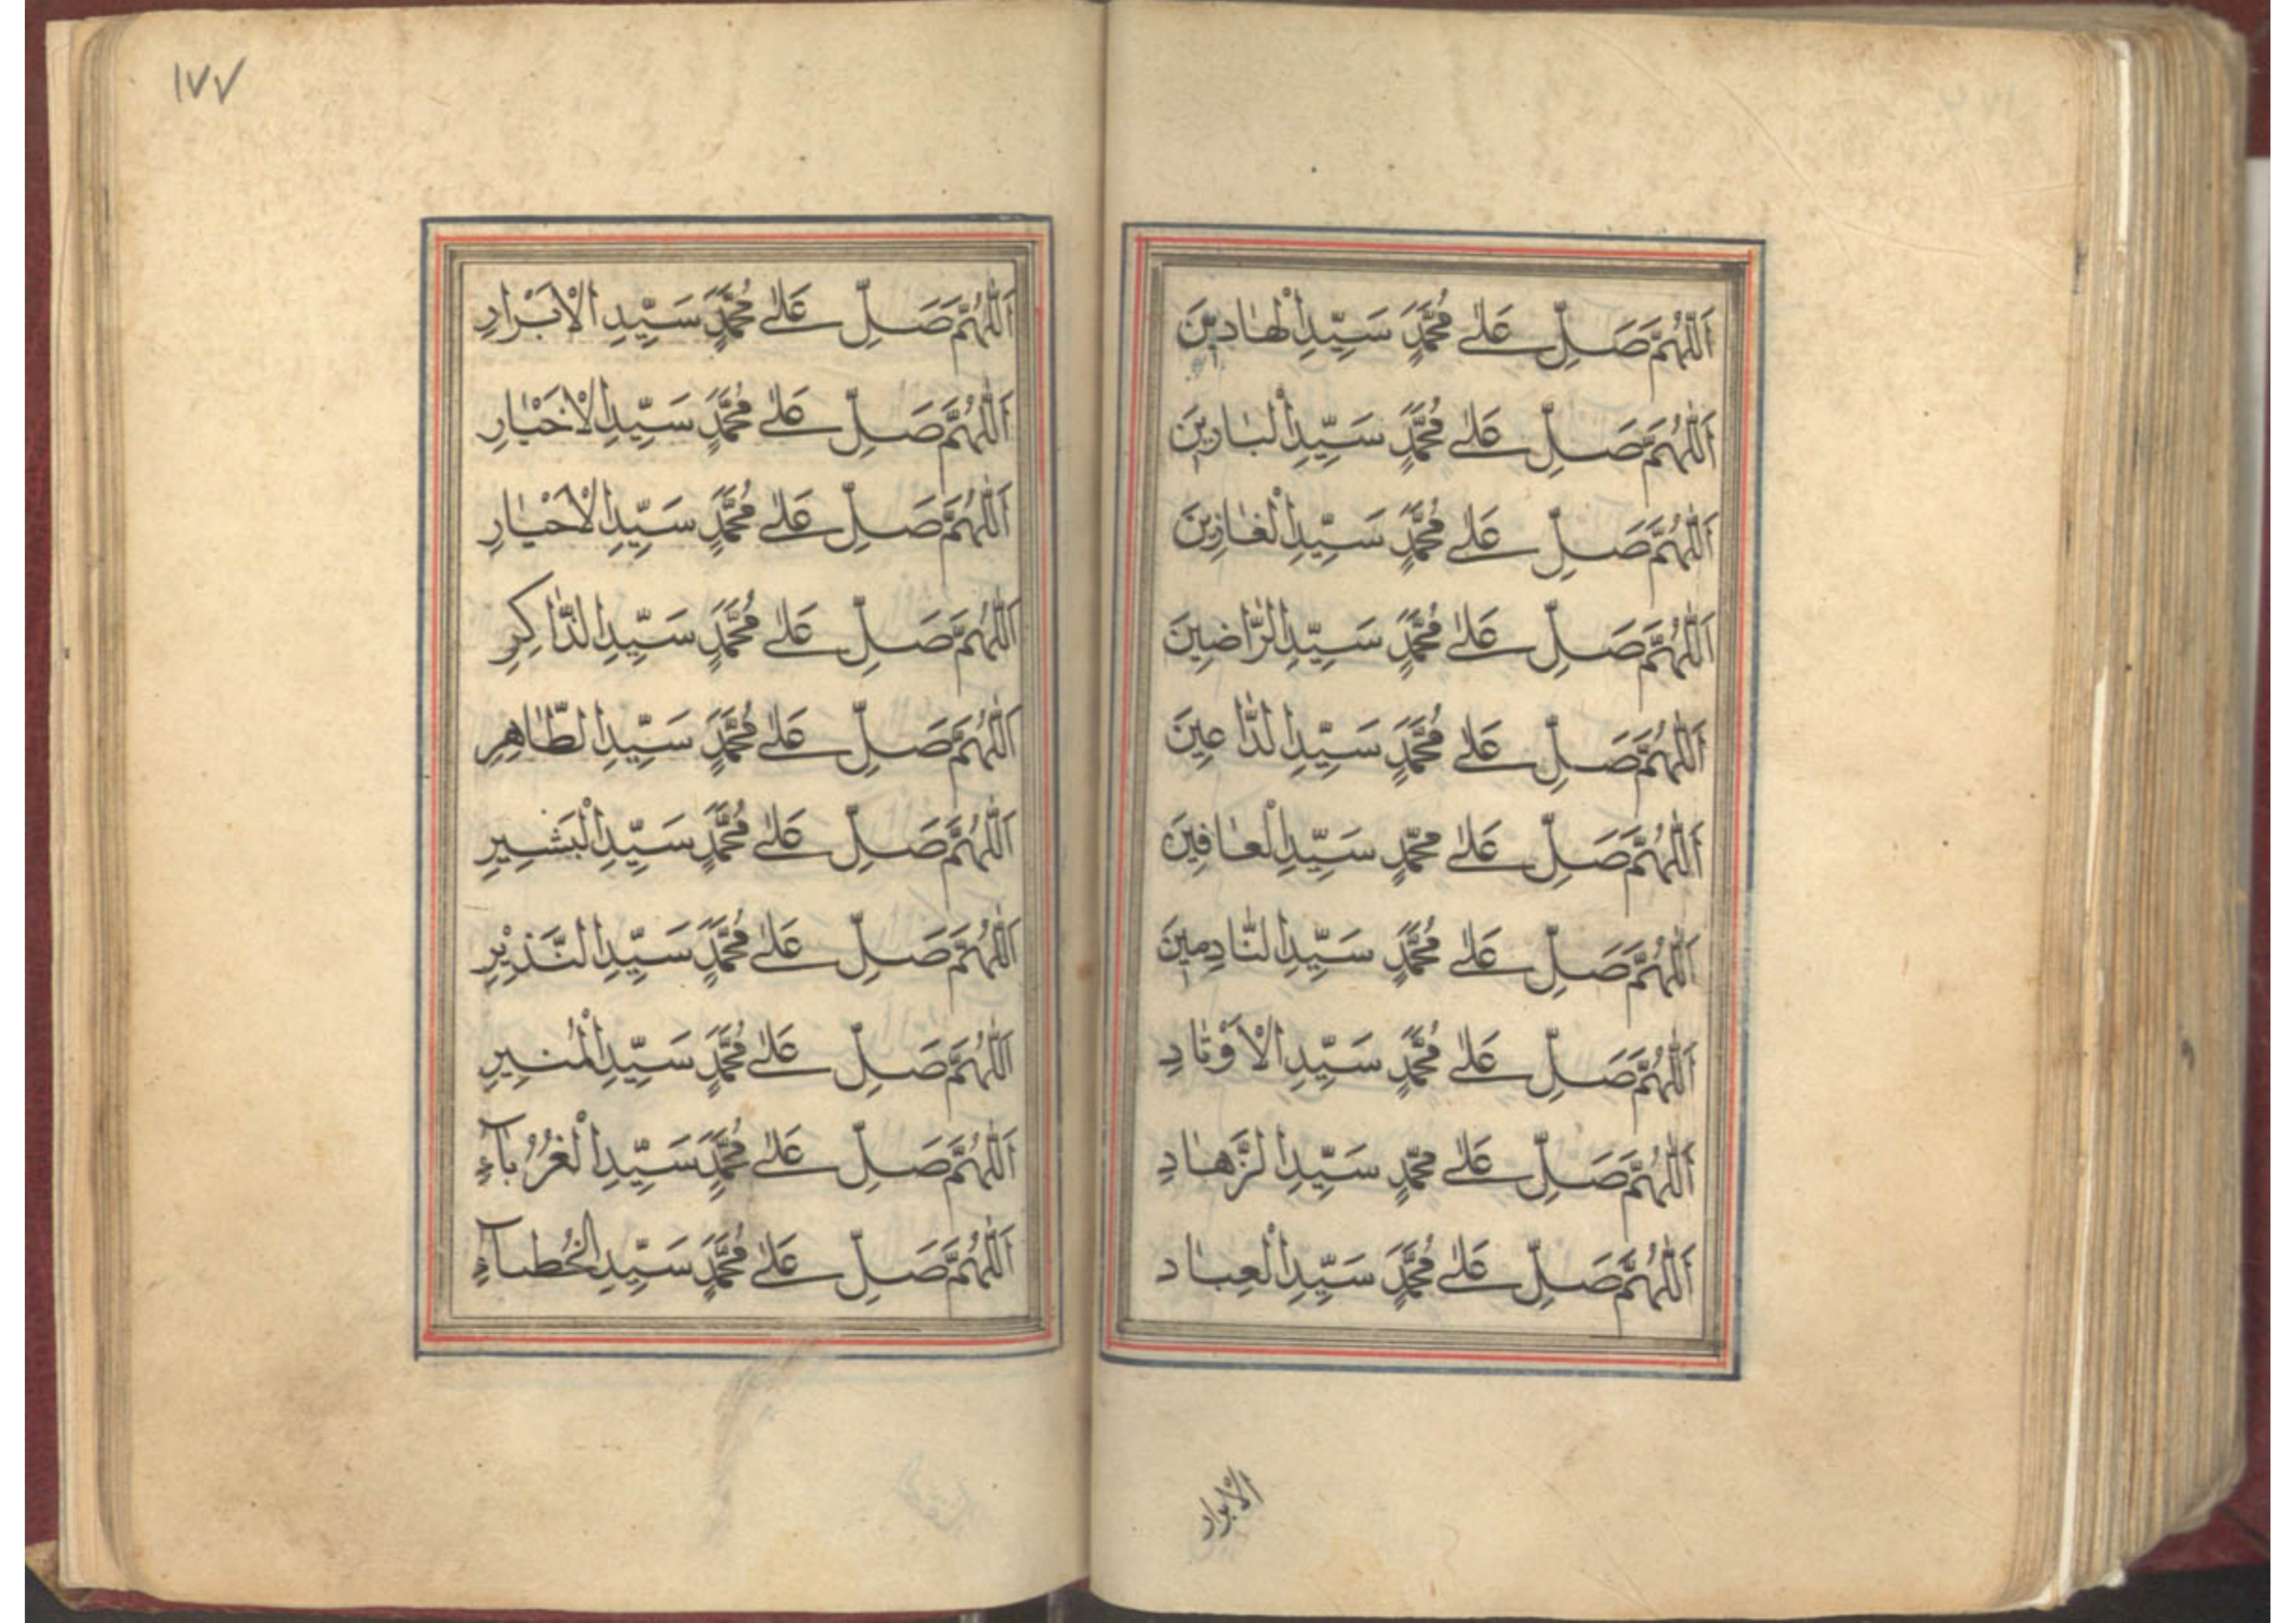 اَللّٰهُمَّ صَلِّ عَلٰى مُحَمَّدٍ سَيِّدِ الْهَادِينَ
اَللّٰهُمَّ صَلِّ عَلٰى مُحَمَّدٍ سَيِّدِ الْبَارِينَ
اَللّٰهُمَّ صَلِّ عَلٰى مُحَمَّدٍ سَيِّدِ الْغَازِينَ
اَللّٰهُمَّ صَلِّ عَلٰى مُحَمَّدٍ سَيِّدِ الرَّاضِينَ
اَللّٰهُمَّ صَلِّ عَلٰى مُحَمَّدٍ سَيِّدِ الدَّاعِينَ
اَللّٰهُمَّ صَلِّ عَلٰى مُحَمَّدٍ سَيِّدِ الْعَافِينَ
اَللّٰهُمَّ صَلِّ عَلٰى مُحَمَّدٍ سَيِّدِ النَّادِمِينَ
اَللّٰهُمَّ صَلِّ عَلٰى مُحَمَّدٍ سَيِّدِ الْاَوْتَادِ
اَللّٰهُمَّ صَلِّ عَلٰى مُحَمَّدٍ سَيِّدِ الزَّهَادِ
اَللّٰهُمَّ صَلِّ عَلٰى مُحَمَّدٍ سَيِّدِ الْعِبَادِ
الابرار
١٧٧
اَللّٰهُمَّ صَلِّ عَلٰى مُحَمَّدٍ سَيِّدِ الْاَبْرَارِ
اَللّٰهُمَّ صَلِّ عَلٰى مُحَمَّدٍ سَيِّدِ الْاَخْيَارِ
اَللّٰهُمَّ صَلِّ عَلٰى مُحَمَّدٍ سَيِّدِ الْاَحْيَارِ
اَللّٰهُمَّ صَلِّ عَلٰى مُحَمَّدٍ سَيِّدِ الذَّاكِرِ
اَللّٰهُمَّ صَلِّ عَلٰى مُحَمَّدٍ سَيِّدِ الطَّاهِرِ
اَللّٰهُمَّ صَلِّ عَلٰى مُحَمَّدٍ سَيِّدِ الْبَشِيرِ
اَللّٰهُمَّ صَلِّ عَلٰى مُحَمَّدٍ سَيِّدِ النَّذِيْرِ
اَللّٰهُمَّ صَلِّ عَلٰى مُحَمَّدٍ سَيِّدِ الْمُنِيرِ
اَللّٰهُمَّ صَلِّ عَلٰى مُحَمَّدٍ سَيِّدِ الْغُرُبَآءِ
اَللّٰهُمَّ صَلِّ عَلٰى مُحَمَّدٍ سَيِّدِ الْخُطَبَآءِ